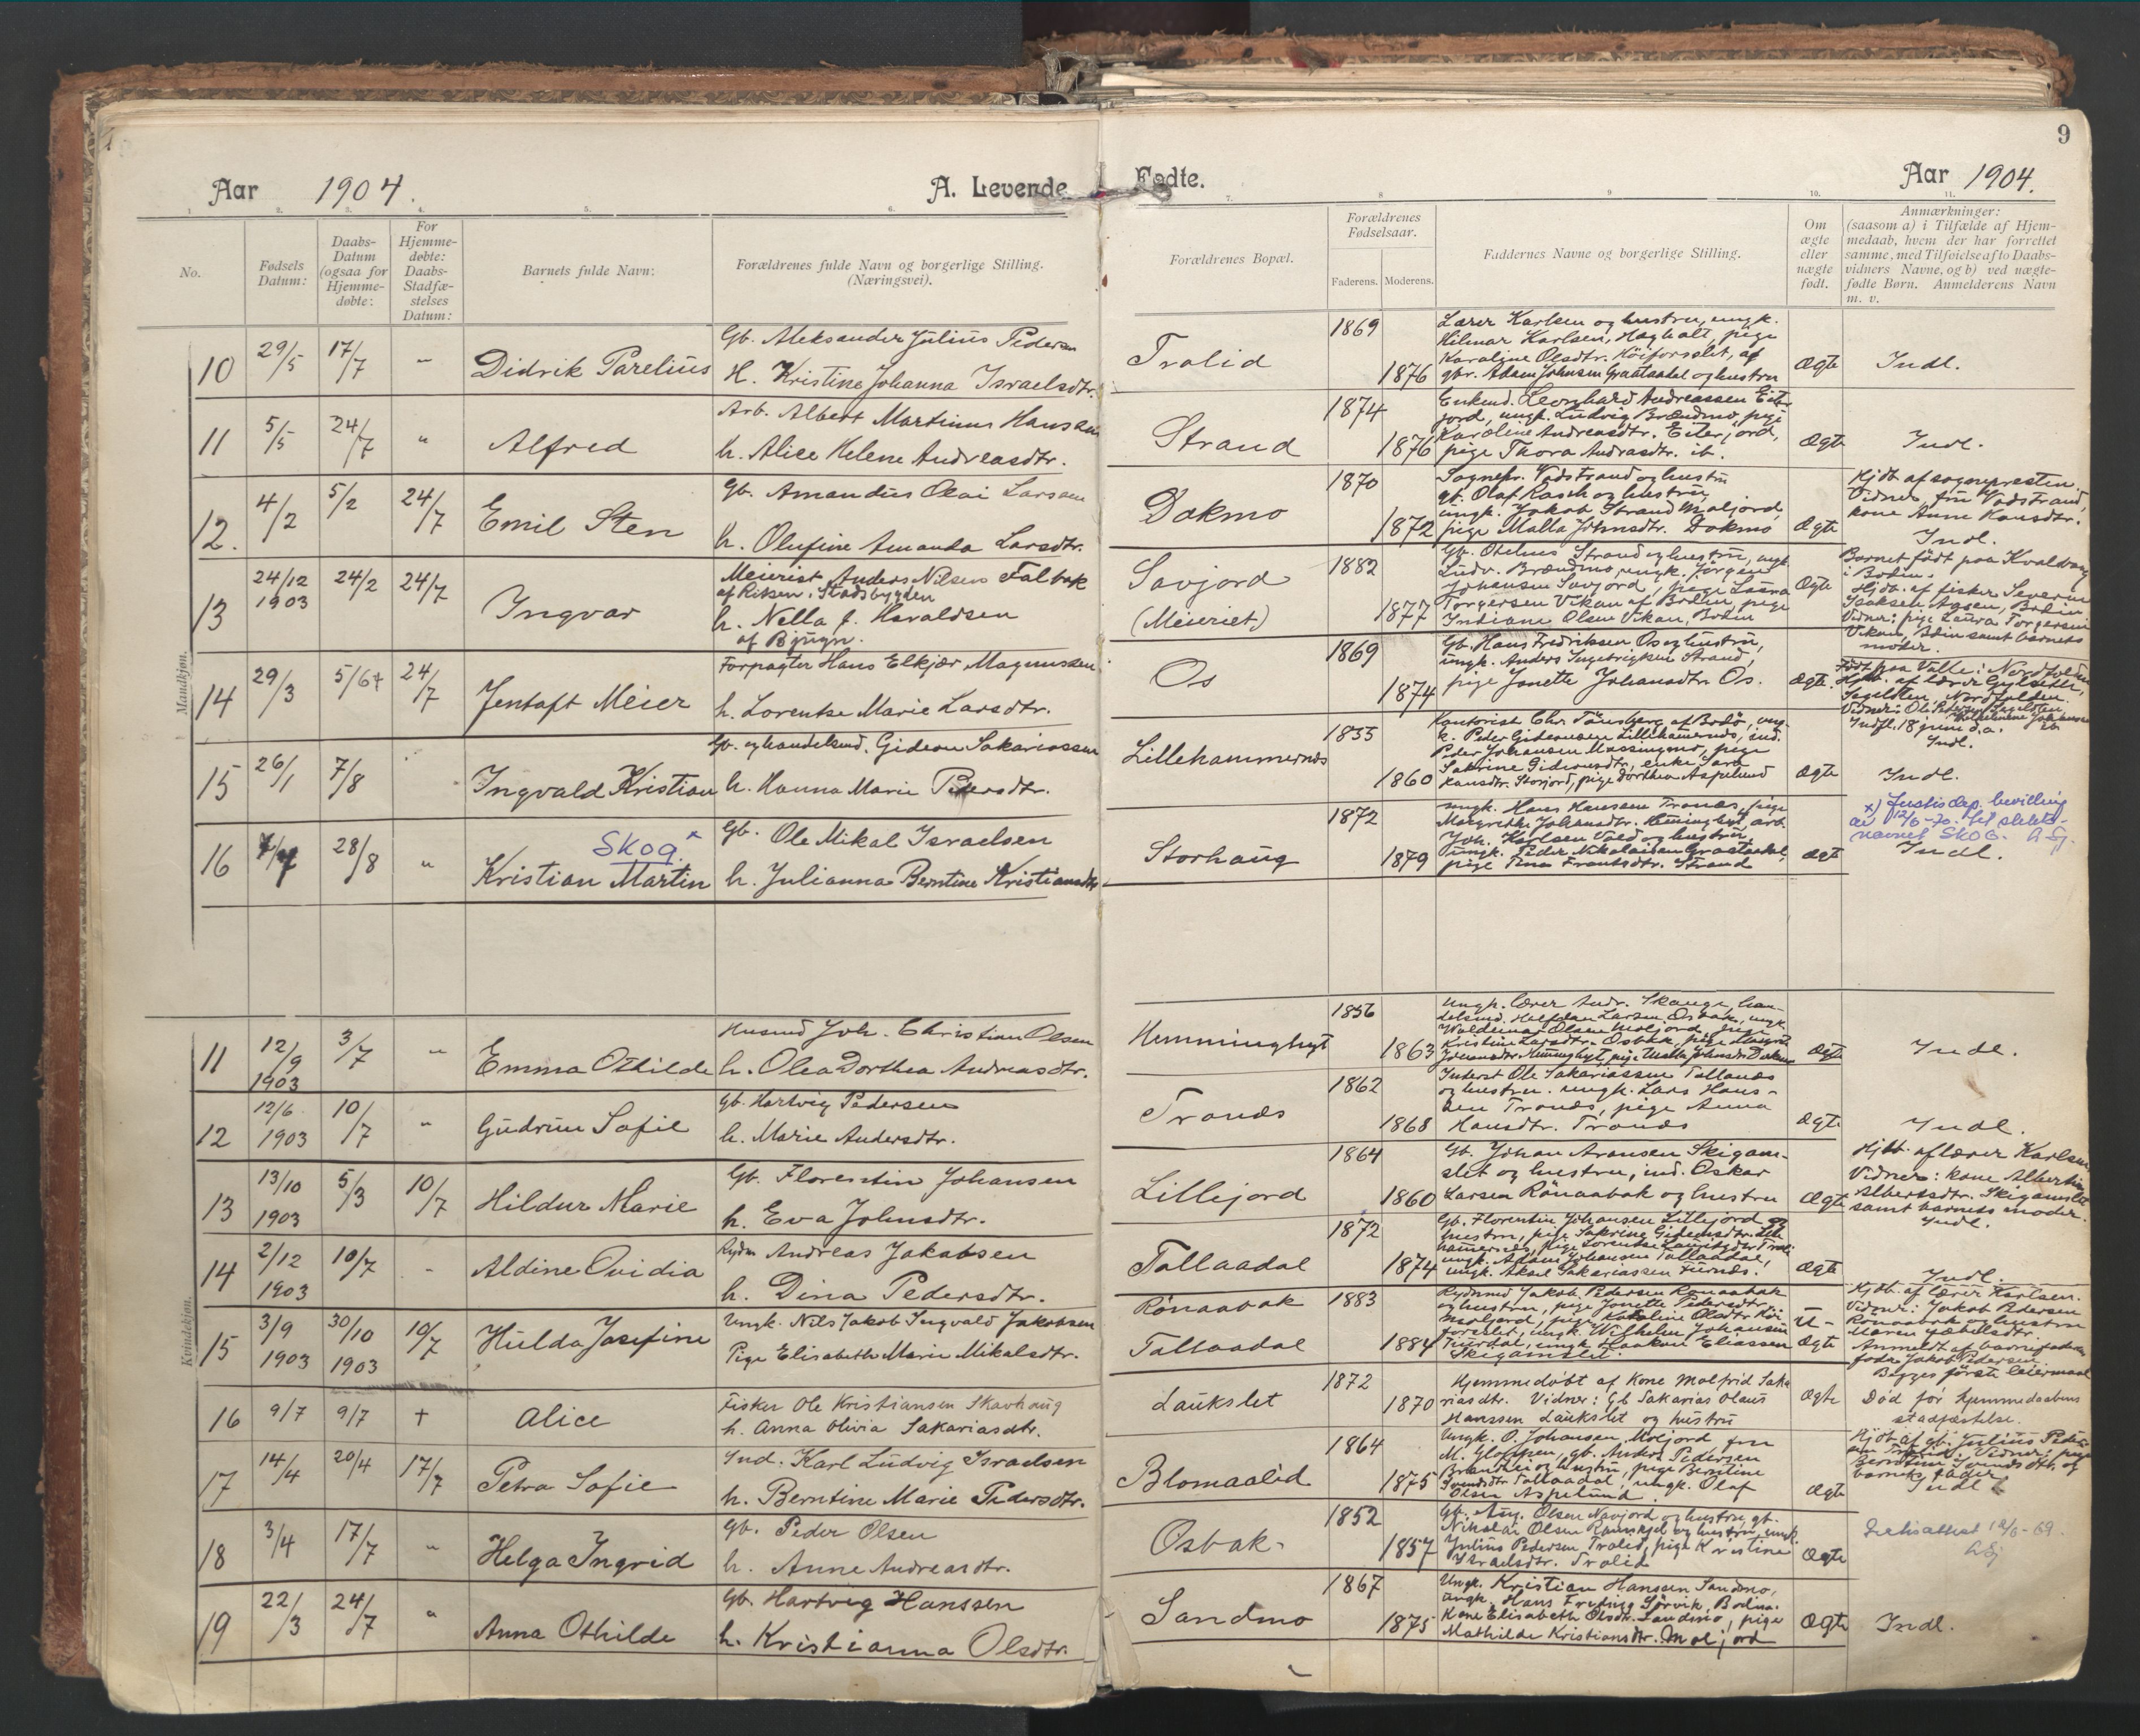 9
Aar 1904. A. Levende Fødte. Aar 1904.
1. 2. 3. 4. 5. 6. 7. 8 9 10. 11.
No.
Fødsels Datum:
Daabs-Datum (ogsaa for Hjemme-døbte:
For Hjemme-døbte: Daabs-Stadfæ-stelses Datum:
Barnets fulde Navn:
Forældrenes fulde Navn og borgerlige Stilling. (Næringsvei).
Forældrenes Bopæl.
Forældrenes Fødselsaar.
Faderens. Moderens.
Faddernes Navne og borgerlige Stilling.
Om ægte eller uægte født.
Anmærkninger: (saasom a) i Tilfælde af Hjem-medaab, hvem der har forrettet samme, med Tilføielse af to Daabs-vidners Navne, og b) ved uægte-fødte Børn. Anmelderens Navn m. v.
Mandkjøn.
10 29/5 17/7 " Didrik Parelius
Gb. Aleksander Julius Pedersen
H. Kristine Johanna Israelsdtr.
Tralid 1869 1876
Lærer Karlsen og hustru, ungk.
Hilmar Karlsen, Høgholt, pige
Karoline Olsdtr. Høiforslet, af
gbr. Adam Johnsen Graataadal og hustru
Ægte Indl.
11 5/5 24/7 " Alfred
Arb. Albert Martinus Hansen
h. Alice Helene Andreasdtr.
Strand 1874 1876
Enkemd. Leonhard Andreassen Eiter-
jord, ungk. Ludvig Brændmo, pige
Karoline Andreasdtr. Eiterjord,
pige Thora Andreasdtr. ib.
Ægte Indl.
12. 4/2 5/2 24/7 Emil Sten
Gb. Amandus Olai Larsen
h. Olufine Amanda Larsdtr.
Dokmo 1870 1872
Sognepr. Vadstrand og hustru
gb. Olaf Rasch og hustru,
ungk. Jakob Strand Moljord,
pige Malla Johnsdtr. Dokmo
Ægte
Hjdt af sognepresten.
Vidner, fru Vadstrand,
kone Anne Hansdtr.
Indl.
13 24/12 1903 24/2 24/7 Ingvar
Meierist Anders Nilsen Falbak
af Rissen, Stadsbygden
h. Nella f. Haraldsen
af Bjugn.
Savjord
(Meieriet)
1882 1877
Gb. Otelius Strand og hustru, ungk.
Ludv. Brændmo, ungk. Jörgen
Johansen Savjord, pige Laura
Torgersen Vikan af Bodin, pige
Indiane Olsen Vikan, Bodin
Ægte
Barnet född paa Kvaldvang
i Bodin.
Hjdb. af fisker Severin
Isaksen Aasen, Bodin
Vidner: pige Laura Torgersen
Vikan, Bodin samt barnets
moder.
14 29/3 5/6 + 24/7 Jentoft Meier
Forpagter Hans Elkjær Magnussen
h. Lorentse Marie Larsdtr.
Os 1869 1874
Gb. Hans Fredriksen Os og hustru,
ungk. Anders Ingebrigtsen Strand,
pige Janette Johansdtr. Os.
Ægte.
Född paa Valle i Nordfolden
Hjdb. af lærer Gylseth,
Sagelven, Nordfolden.
Vidner: Ole Pedersen Sagelven,
Vilhelmine Johansen ib.
Indfl. 18 juni d.a.
Indl.
15 26/1 7/8 Ingvald Kristian
Gb. og handelsmd. Gideon Sakariassen
h. Hanna Marie Pedersdtr.
Lillehammernes 1855 1860
Kantorist Chr. Tönsberg af Bodö, ung-
k. Peder Gideonsen Lillehamernes, ind.
Peder Johansen Messingmo, pige
Sakrine Gideonsdtr, enke Sara
Hansdtr. Storjord, pige Dorthea Aspelund
Ægte Indl.
16 7/7 28/8 " Skog. x Kristian Martin
Gb. Ole Mikal Israelsen
h. Julianna Berntine Kristiansdtr
Storhaug 1872 1879
ungk. Hans Hansen Tronæs, pige
Margrethe Johansdtr. Hemminghyt, arb.
Joh. Karlsen Vold og hustru,
ungk. Peder Nikolaisen Graataadal,
pige Tina Frantsdtr. Strand
Ægte
x) Justis dep. bevilling
av 12/6-70 til slekts-
navnet SKOG.
Indl.
Kvindekjøn.
11 12/9 1903 3/7 " Emma Othilde
Husmd Joh. Christian Olsen
h. Olea Dorthea Andreasdtr.
Hemminghyt 1856 1863
Ungk. lærer Andr. Skauge, han-
delsmd. Halfdan Larsen Osbak, ungk.
Waldemar Olsen Moljord, pige
Kristine Larsdtr. Osbak, pige
Johansdtr. Hemminghyt, pige Malla Johnsdtr Dokmo
Ægte Indl.
12 12/6 1903 10/7 " Gudrun Sofie
Gb. Hartvig Pedersen
h. Marie Andersdtr.
Tronæs 1862 1868
Inderst Ole Sakariassen Tollanes
og hustru. ungk. Lars Hans-
sen Tronæs, pige Anna
Hansdtr. Tronæs
Ægte Indl.
13 13/10 1903 5/3 10/7 Hildur Marie
Gb. Florentin Johansen
h. Eva Johnsdtr.
Lillejord 1864 1860
Gb. Johan Aronsen Skigam-
slet og hustru, ind. Oskar
Larsen Rönaabak og hustru
Ægte
Hjdb. af lærer Karlsen
Vidner: kone Albertine
Albertsdtr. Skigamslet
samt barnets moder.
Indl.
14 2/12 1903 10/7 - Aldine Ovidia
Rydm Andreas Jakobsen
h. Dina Pedersdtr.
Tollaadal 1872 1874
Gb. Florentin Johansen Lillejord og
hustru, pige Sakrine Gideonsdtr Lille-
hamernes, pige Lorentse
ungk. Adam Johansen Tollaadal,
ungk. Aksel Sakariassen Furnæs.
Ægte Indl.
15 3/9 1903 30/10 1903 10/7 Hulda Josefine
Ungk. Nils Jakob Ingvald Jakobsen
Pige Elisabeth Marie Mikalsdtr.
Rönaabak
Tollaadal
1883 1884
Rydmd Jakob Pedersen Rönaabak
og hustru, pige Jonette Pedersdtr
Moljord, pige Karoline Olsdtr Høi-
forslet, ungk. Wilhelm Johansen
Tuurdal, ungk. Haakon Eliassen
Skigamslet.
U-ægte
Hjdb. af lærer Karlsen.
Vidner: Jakob Pedersen
Rönaabak og hustru
Maren
Anmeldt af barnefaderens
fader Jakob Pedersen.
Begges første leiermaal
16 9/7 9/7 + Alice
Fisker Ole Kristiansen Skavhaug
h. Anna Olivia Sakariasdtr.
Laukslet 1872 1870
Hjemmedøbt af Kone Malfrid Saka-
riasdtr. Vidner: Gb Sakarias Olaus
Hanssen Laukslet og hustru
Ægte
Død før hjemmedaabens
stadfæstelse.
17 14/4 20/4 17/7 Petra Sofie
Ind. Karl Ludvig Israelsen
h. Berntine Marie Pedersdtr.
Blomaalid 1864 1875
Ungk. O. Johansen, Moljord fru
M. Gloppen, gb. Anders Pedersen
Brændlei og hustru, pige Berntine
Tollaadal, ungk. Olaf
Olsen Aspelund.
Ægte
Hjdt af gb. Julius Peder-
sen Tralid. Vidner: pige
Berntine og
barnets fader.
Indl.
18 3/4 17/7 " Helga Ingrid
Gb. Peder Olsen
h. Anne Andreasdtr.
Osbak. 1852 1857
Gb. Aug. Olsen Navjord og hustru, gb.
Nikolai Olsen og hustru, ungk.
Julius Pedersen Tralid, pige Kristine
Israelsdtr. Tralid
Ægte
19 22/3 24/7 " Anna Othilde
Gb. Hartvig Hanssen
h. Kristianna Olsdtr.
Sandmo 1867 1875
Ungk. Kristian Hanssen Sandmo,
ungk. Hans Fredrigg Sörvik, Bodin.
Kone Elisabeth Olsdtr. Sandmo, pige
Mathilde Kristiansdtr. Moljord
Ægte Indl.